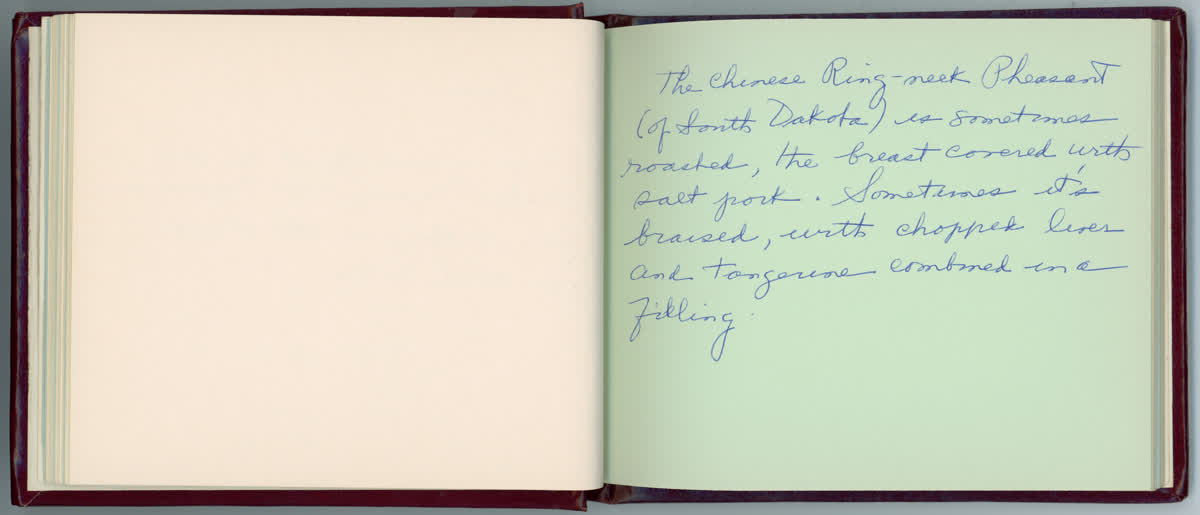 The Chinese Ring-neck Pheasant
(of South Dakota) is sometimes
roasted, the breast covered with
salt pork. Sometimes it's
braised, with chopped liver
and tangerine combined in a
filling.